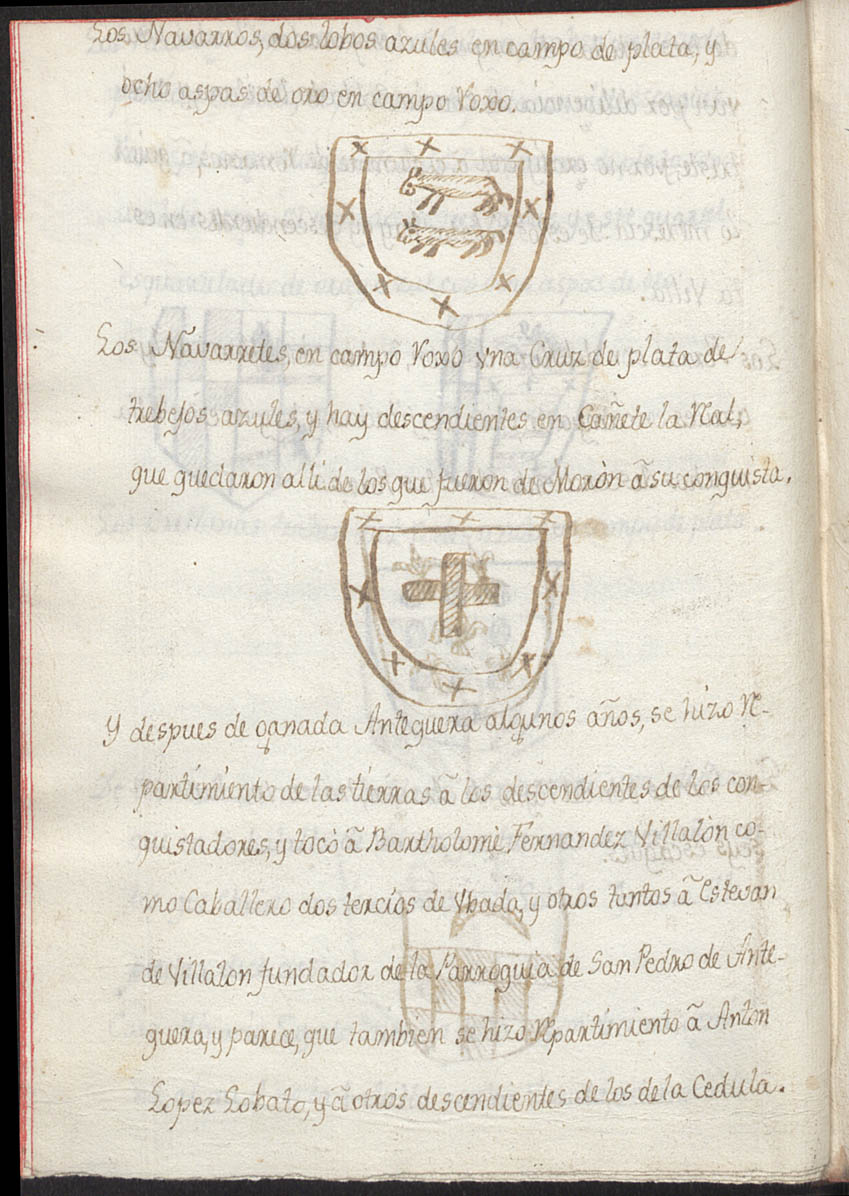 Los Navarros, dos lobos azules en campo de plata, y
ocho aspas de oro en campo Roxo.
Los Nãvarretes, en campo Roxo vna Cruz de plata de
trebejos azules, y hay descendientes en Cañete la Real,
que quedaron alli de los que fueron de Moròn ã su conquista.
Y despues de ganada Antequera algunos años, se hizo Re-
partimiento de las tierras ã los descendientes de los con-
quistadores, y tocò ã Bartholomè Fernandez Villalòn co-
mo Caballero dos tercios de Vbada, y otros tantos ã Estevan
de Villalon fundador de la Parroquia de San Pedro de Ante-
quera, y parece, que tambien se hizo Repartimiento ã Anton
Lopez Lobato, y ã otros descendientes de los de la Cedula.